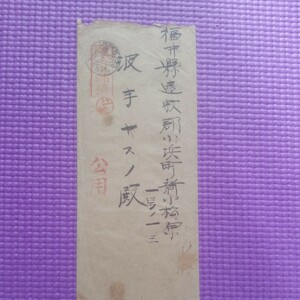 福井縣遠敷郡小浜町新小松原
一号ノ一三
波手ヤスノ殿
公用